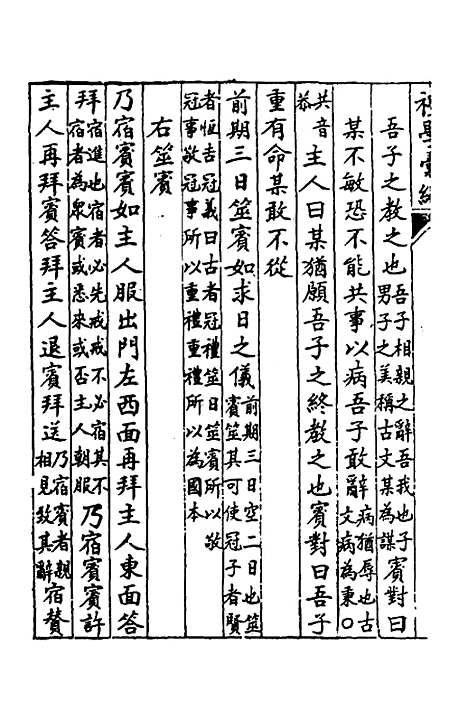 禮學彙編
吾子之教之也吾子相親之辭吾我也子男子之美稱古文某為謀賓對曰
某不敏恐不能共事以病吾子敢辭病猶辱也古文病為秉〇
共音恭主人曰某猶願吾子之終教之也賓對曰吾子
重有命某敢不從
前期三日筮賓如求日之儀前期三日空二日也筮賓筮其可使冠子者賢
者恒吉冠義曰古者冠禮筮日筮賓所以敬冠事敬冠事所以重禮重禮所以為國本
右筮賓
乃宿賓賓如主人服出門左西面再拜主人東面答
拜宿進也宿者必先戒戒不必宿其不宿者為眾賓或悉來或否主人朝服乃宿賓賓許
主人再拜賓答拜主人退賓拜送乃宿賓者親相見致其辭宿贊